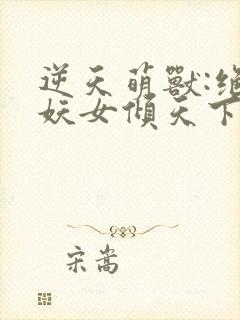 逆天萌獸:絕
妖女傾天下
宋嵩